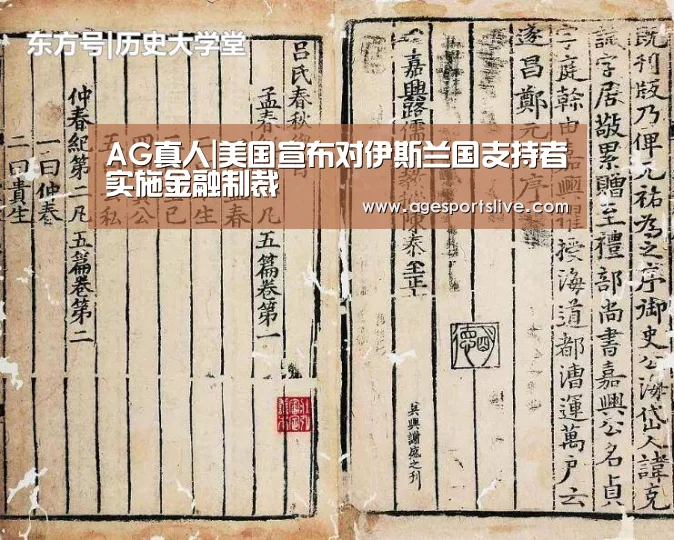 东方号|历史大学堂
AG真人|美国宣布对伊斯兰国支持者
实施金融制裁
www.agesportslive.com
既刋版乃俾元祐為之序御史公海岱人諱克
誠字居敬累贈至禮部尚書嘉興公名貞
字庭幹由嘉興擢授海道都漕運萬戶云
遂昌鄭元序
嘉興路儒陳泰至正
吳興謝盛之刊
呂氏春秋
孟春凡五篇卷第一
春
生
己
公
五私
仲春紀第二凡五篇卷第二
一曰仲春
二曰貴生